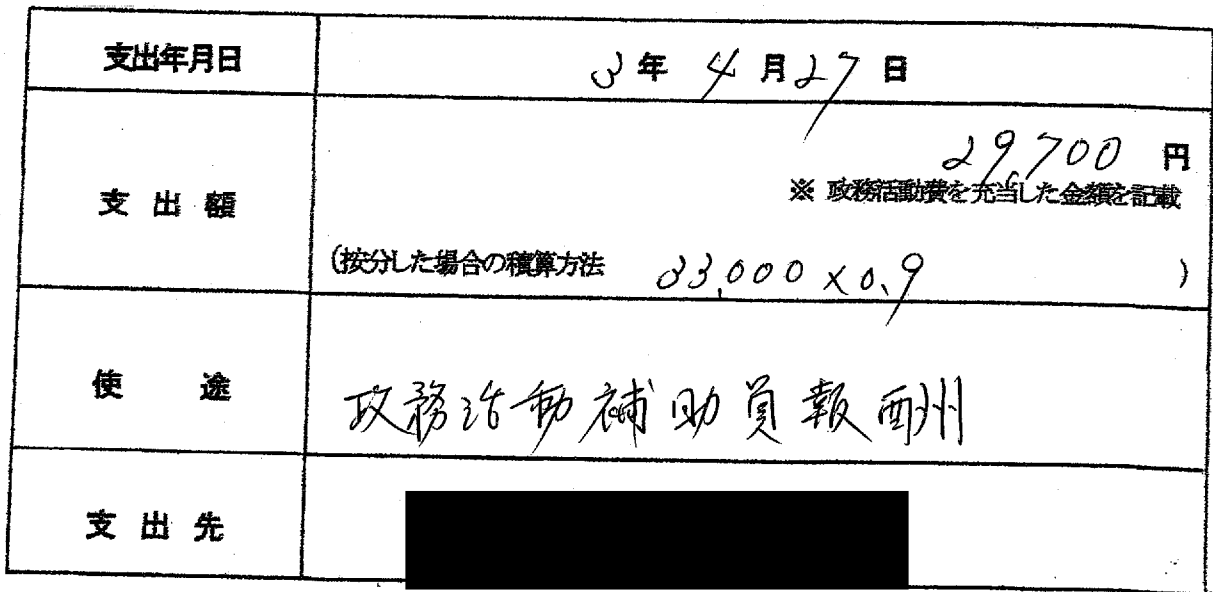 支出年月日 3年 4月27日
29,700 円
支出額
※ 政務活動費を充当した金額を記載
(按分した場合の積算方法 33,000×0.9 )
使途 政務活動補助員報酬
支出先